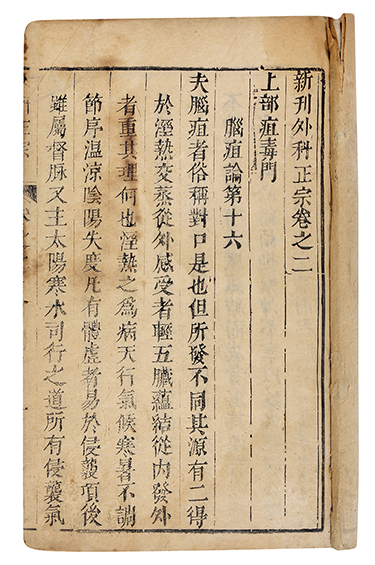 新刊外科正宗卷之二
上部疽毒門
腦疽論第十六
夫腦疽者俗稱對口是也但所發不同其源有二得
於溼熱交蒸從外感受者輕五臟蘊結從内發外
者重其理何也溼熱之為病天行氣候寒暑不調
節序温涼陰陽失度凡有體虛者易於侵襲項後
雖屬督脉又主太陽寒水司行之道所有侵襲氣